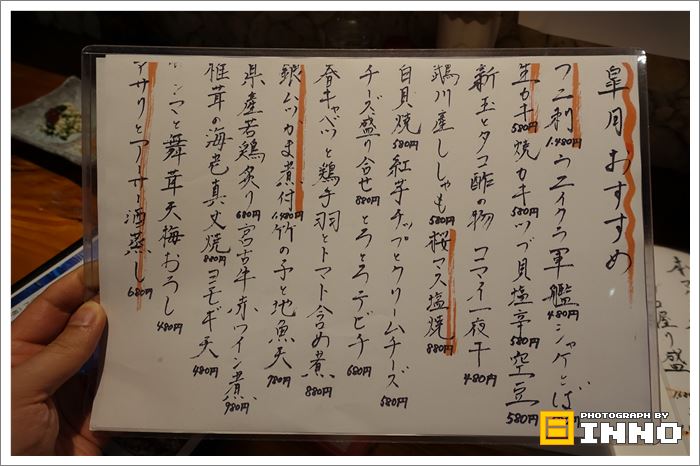 皐月おすすめ
ウニ刺1,480円 ウニイクラ軍艦480円 シャケとば
生カキ580円 焼カキ580円 ツブ貝塩辛580円 空豆580円
新玉とタコ酢の物 コマイ一夜干480円
鵡川産ししゃも580円 桜マス塩焼880円
白貝焼580円 紅芋チップとクリームチーズ580円
チーズ盛り合せ880円 とろとろテビチ680円
春キャベツと鶏手羽とトマト含め煮880円
銀ムツかま煮付1,480円 竹の子と地魚天780円
県産若鶏炙り680円 宮古牛赤ワイン煮980円
椎茸の海老真丈焼880円 ヨモギ天480円
シマと舞茸天梅おろし480円
アサリとアーサー酒蒸し680円
PHOTOGRAPH BY
INNO